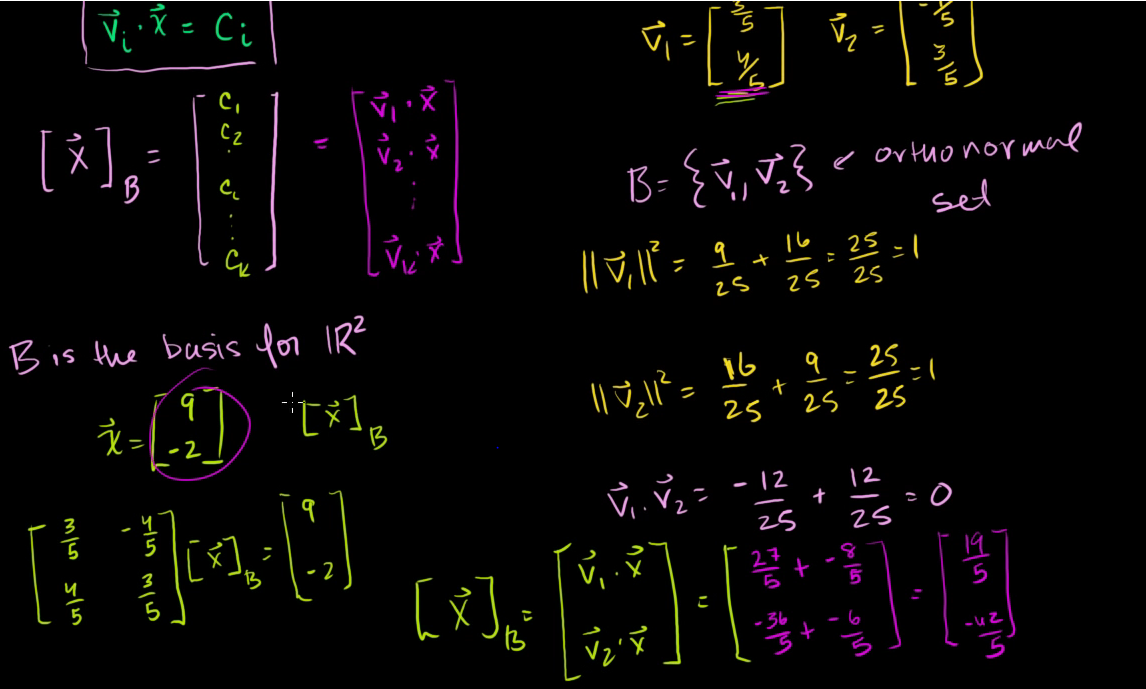 v⃗ᵢ · x⃗ = Cᵢ
[x⃗]_B = [C₁ C₂ . Cᵢ ⋮ Cₖ] = [v⃗₁ · x⃗ v⃗₂ · x⃗ ⋮ v⃗ₖ · x⃗]
B is the basis for ℝ²
x⃗ = [9 -2] [x⃗]_B
[3/5 -4/5 4/5 3/5] [x⃗]_B = [9 -2]
v⃗₁ = [3/5 4/5] v⃗₂ = [-4/5 3/5]
B = {v⃗₁, v⃗₂} ← orthonormal
set
||v⃗₁||² = 9/25 + 16/25 = 25/25 = 1
||v⃗₂||² = 16/25 + 9/25 = 25/25 = 1
v⃗₁ · v⃗₂ = -12/25 + 12/25 = 0
[x⃗]_B = [v⃗₁ · x⃗ v⃗₂ · x⃗] = [27/5 + -8/5 -36/5 + -6/5] = [19/5 -42/5]